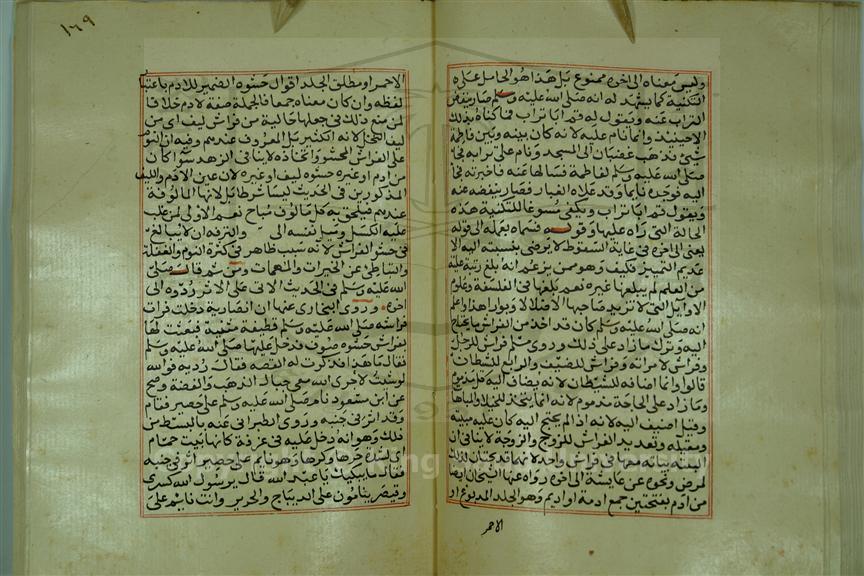 وليس معناه الى اخره ممنوع بل هذا هو الحامل على
التكنية كما يشهد له انه صلى الله عليه وسلم صار ينفض
التراب عنه ويقول له قم ابا تراب فما كناه بذلك
الا حينئذ وانما نام عليه لانه كان بينه وبين فاطمة
شئ فذهب غضبان الى المسجد ونام على ترابه فجاء
صلى الله عليه وسلم لفاطمة فسالها عنه فاخبرته فجاء
اليه فوجده نايما وقد علاه الغبار فصار ينفضه عنه
ويقول قم ابا تراب ويكفى مسوغا للتكنية هذه
الحالة التى راه عليها وقوله فسماه بعمله الى قوله
يعنى الى اخره فى غاية السقوط لا يرضى بنسبته اليه الا
عديم التمييز فكيف وهو ممن يزعم انه بلغ رتبة عليه
من العلم لم يبلغها غيره نعم بلغها فى الفلسفة وعلوم
الاوايل التى لا تزيد صاحبها الا ضلالا وبوارا هذا واعلم
انه صلى الله عليه وسلم كان قد اخذ من الفراش ما يحتاج
اليه وترك ما زاد على ذلك وروى مسلم فراش للرجل
وفراش لامراته وفراش للضيف والرابع للشيطان
قالوا وانما اضافه للشيطان لانه يضاف اليه كل مذموم
وما زاد على الحاجة مذموم لانه انما يتخذ للخيلا والمباهاة
وقيل اضيف اليه لانه اذا لم يحتج اليه كان عليه مبيته
ومقيله وتعديد الفراش للزوج والزوجة لا ينافى ان
السنة بياته معها فى فراش واحد لانهما قد يحتاجان لذلك
لمرض ونحوه عن عايشة الى اخره رواه عنها الشيخان ايضا
من ادم بفتحتين جمع ادمة او اديم وهو الجلد المدبوغ او
الاحمر
١٦٩
الاحمر او مطلق الجلد اقوال حشوه الضمير للادم باعتبار
لفظه وان كان معناه جمعا فالجملة صفة لادم خلافا
لمن منع ذلك فى جعلها حالية من فراش ليف اى من
ليف النخل لانه الكثير بل المعروف عندهم وفيه ان النوم
على الفراش المحشو واتخاذه لا ينافى الزهد سوا كان
من ادم او غيره حشوه ليف او غيره لان عين الادم والليف
المذكورين فى الحديث ليسا شرطا بل لانها المالوفة
عندهم فيلحق به كل مالوف مباح نعم الاولى لمن غلب
عليه الكسل وميل نفسه الى والترفه ان لا يبالغ
فى حشو الفراش لانه سبب ظاهر فى كثرة النوم والغفلة
والتباطئ عن الخيرات والمهمات ومن ثم قال صلى
الله عليه وسلم فى الحديث الاتى على الاثر ردوه الى
اخره وروى البخارى عنها ان انصارية دخلت فرات
فراشه صلى الله عليه وسلم قطيفة مثنية فبعثت لها
بفراش حشوه صوف فدخل عليها صلى الله عليه وسلم
فقال ما هذا فذكرت له القصة فقال رديه فوالله
لو شئت لاجرى الله معى جبال الذهب والفضة وصح
عن ابن مسعود نام صلى الله عليه وسلم على حصير فقام
وقد اثر فى جنبه وروى الطبرانى عنه بابسط من
ذلك وهو انه دخل عليه فى غرفة كانها بيت حمام
اى لشدة حرها وكربها وهو نايم على حصير اثر فى جنبه
فقال ما يبكيك يا عبد الله قال يرسول الله كسرى
وقيصر ينامون على الديباج والحرير وانت نايم على